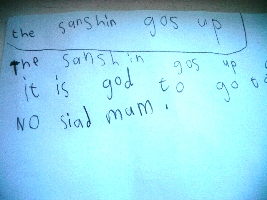 the sanshin gos up
The sanshin gos up
it is god to go to
NO siad mum.